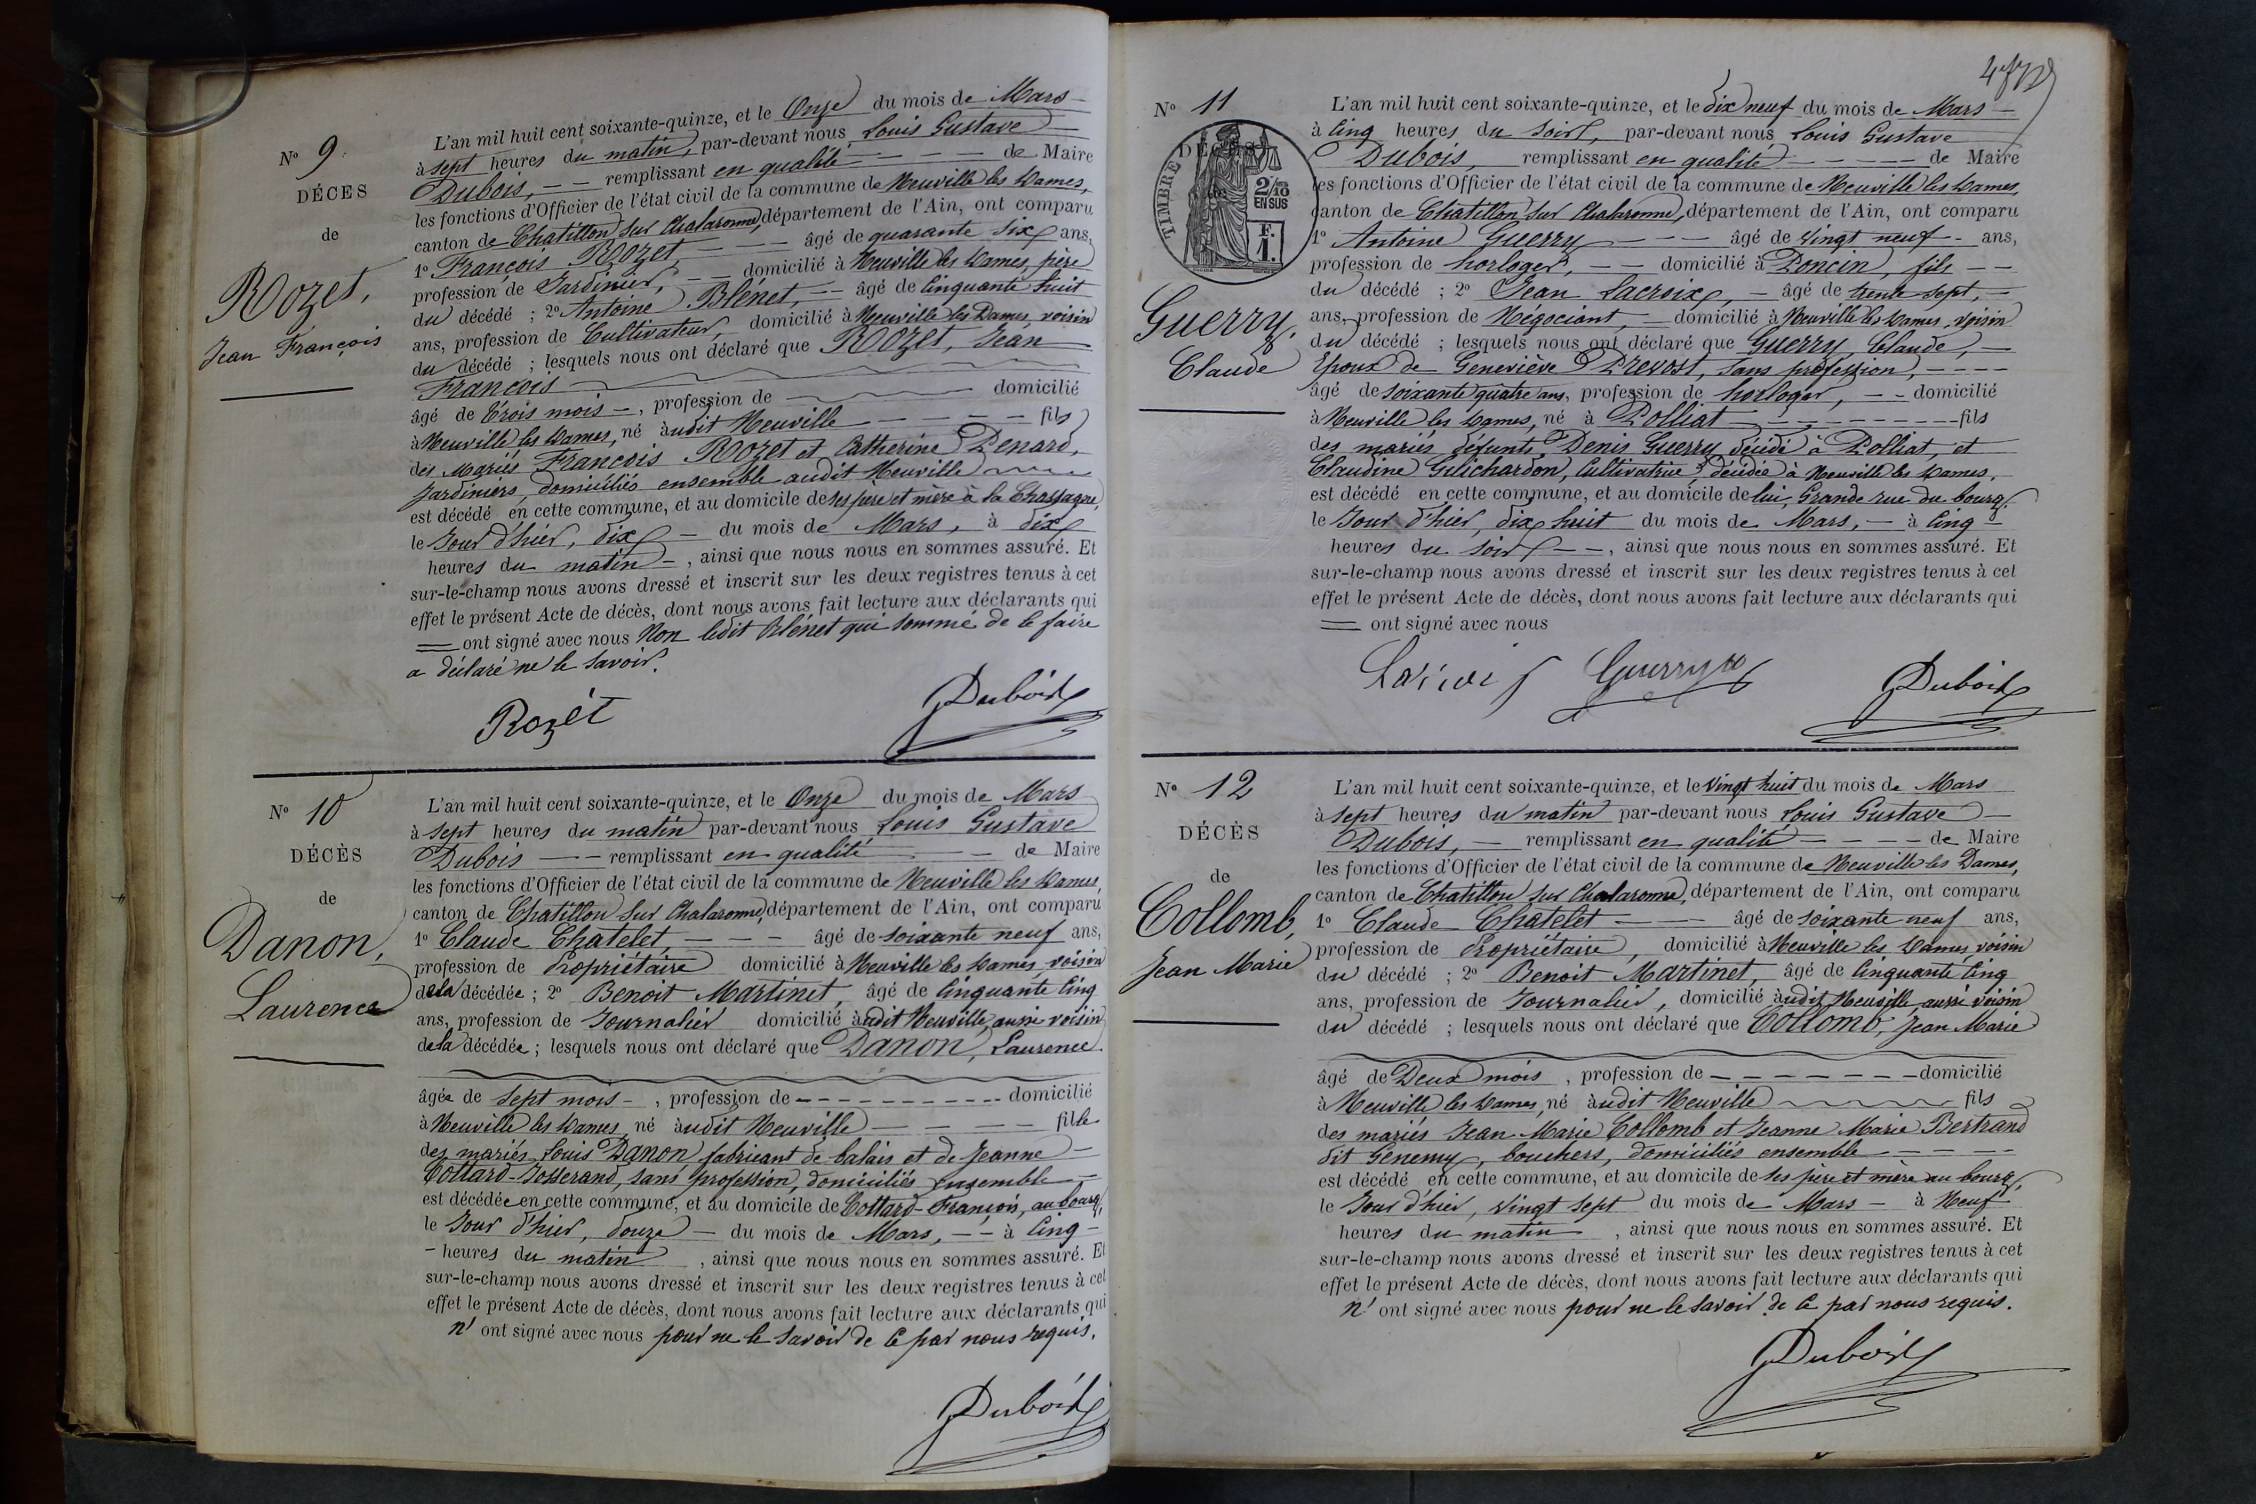 N° 9
DÉCES
de
Rozet,
Jean François
L'an mil huit cent soixante-quinze, et le Onze du mois de Mars
à sept heures du matin, par-devant nous Louis Gustave
Dubois, remplissant en qualité de Maire
les fonctions d'Officier de l'état civil de la commune de Neuville les Dames,
canton de Chatillon sur Chalaronne, département de l'Ain, ont comparu
1° François Rozet, âgé de quarante six ans,
profession de Jardinier, domicilié à Neuville les Dames, père
du décédé ; 2° Antoine Blénet, âgé de Cinquante huit
ans, profession de Cultivateur, domicilié à Neuville les Dames, voisin
du décédé ; lesquels nous ont déclaré que Rozet, Jean
François
âgé de trois mois, profession de domicilié
à Neuville les Dames, né audit Neuville fils
des Mariés François Rozet et Catherine Penard,
Jardiniers, domiciliés ensemble audit Neuville
est décédé en cette commune, et au domicile de ses père et mère à la Chassagne,
le Jour d'hier, dix du mois de Mars, à dix
heures du matin, ainsi que nous nous en sommes assuré. Et
sur-le-champ nous avons dressé et inscrit sur les deux registres tenus à cet
effet le présent Acte de décès, dont nous avons fait lecture aux déclarants qui
ont signé avec nous Non ledit Blénet qui sommé de le faire
a déclaré ne le savoir.
Rozet Dubois
N° 10
DÉCÈS
de
Danon,
Laurence
L'an mil huit cent soixante-quinze, et le Onze du mois de Mars
à sept heures du matin par-devant nous Louis Gustave
Dubois remplissant en qualité de Maire
les fonctions d'Officier de l'état civil de la commune de Neuville les Dames,
canton de Chatillon sur Chalaronne, département de l'Ain, ont comparu
1° Claude Chatelet, âgé de soixante neuf ans,
profession de Propriétaire domicilié à Neuville les Dames, voisin
de la décédée ; 2° Benoit Martinet, âgé de Cinquante Cinq
ans, profession de Journalier domicilié audit Neuville, aussi voisin
de la décédée ; lesquels nous ont déclaré que Danon, Laurence
âgée de sept mois, profession de domicilié
à Neuville les Dames, né audit Neuville fille
des mariés Louis Danon fabricant de balais et de Jeanne
Cottard-Josserand, sans profession, domiciliés ensemble
est décédée en cette commune, et au domicile de Cottard-François, au bourg,
le Jour d'hier, douze du mois de Mars, à Cinq
heures du matin, ainsi que nous nous en sommes assuré. Et
sur-le-champ nous avons dressé et inscrit sur les deux registres tenus à cet
effet le présent Acte de décès, dont nous avons fait lecture aux déclarants qui
n'ont signé avec nous pour ne le savoir de ce par nous requis.
Dubois
N° 11
DÉCÈS
TIMBRE
2/10
EN SUS
F.
1.
Guerry,
Claude
L'an mil huit cent soixante-quinze, et le dix neuf du mois de Mars
à Cinq heures du soir, par-devant nous Louis Gustave
Dubois, remplissant en qualité de Maire
les fonctions d'Officier de l'état civil de la commune de Neuville les Dames,
canton de Chatillon sur Chalaronne, département de l'Ain, ont comparu
1° Antoine Guerry âgé de vingt neuf ans,
profession de horloger, domicilié à Poncin, fils
du décédé ; 2° Jean Lacroix, âgé de trente sept,
ans, profession de Négociant, domicilié à Neuville les Dames, voisin
du décédé ; lesquels nous ont déclaré que Guerry, Claude,
Epoux de Geneviève Prevost, sans profession,
âgé de soixante quatre ans, profession de horloger, domicilié
à Neuville les Dames, né à Polliat fils
des mariés défunts, Denis Guerry décédé à Polliat, et
Claudine Guichardon, Cultivatrice, décédée à Neuville les Dames,
est décédé en cette commune, et au domicile de lui, Grande rue du bourg,
le Jour d'hier, dix huit du mois de Mars, à Cinq
heures du soir, ainsi que nous nous en sommes assuré. Et
sur-le-champ nous avons dressé et inscrit sur les deux registres tenus à cet
effet le présent Acte de décès, dont nous avons fait lecture aux déclarants qui
ont signé avec nous
Guerry Dubois
N° 12
DÉCÈS
de
Collomb,
Jean Marie
L'an mil huit cent soixante-quinze, et le Vingt huit du mois de Mars
à sept heures du matin par-devant nous Louis Gustave
Dubois, remplissant en qualité de Maire
les fonctions d'Officier de l'état civil de la commune de Neuville les Dames,
canton de Chatillon sur Chalaronne, département de l'Ain, ont comparu
1° Claude Chatelet âgé de soixante neuf ans,
profession de Propriétaire, domicilié à Neuville les Dames, voisin
du décédé ; 2° Benoit Martinet, âgé de Cinquante Cinq
ans, profession de Journalier, domicilié audit Neuville, aussi voisin
du décédé ; lesquels nous ont déclaré que Collomb, Jean Marie
âgé de Deux mois, profession de domicilié
à Neuville les Dames, né audit Neuville fils
des mariés Jean Marie Collomb et Jeanne Marie Bertrand
dit Genemy, bouchers, domiciliés ensemble
est décédé en cette commune, et au domicile de ses père et mère au bourg,
le Jour d'hier, vingt sept du mois de Mars à Neuf
heures du matin, ainsi que nous nous en sommes assuré. Et
sur-le-champ nous avons dressé et inscrit sur les deux registres tenus à cet
effet le présent Acte de décès, dont nous avons fait lecture aux déclarants qui
n'ont signé avec nous pour ne le savoir de ce par nous requis.
Dubois